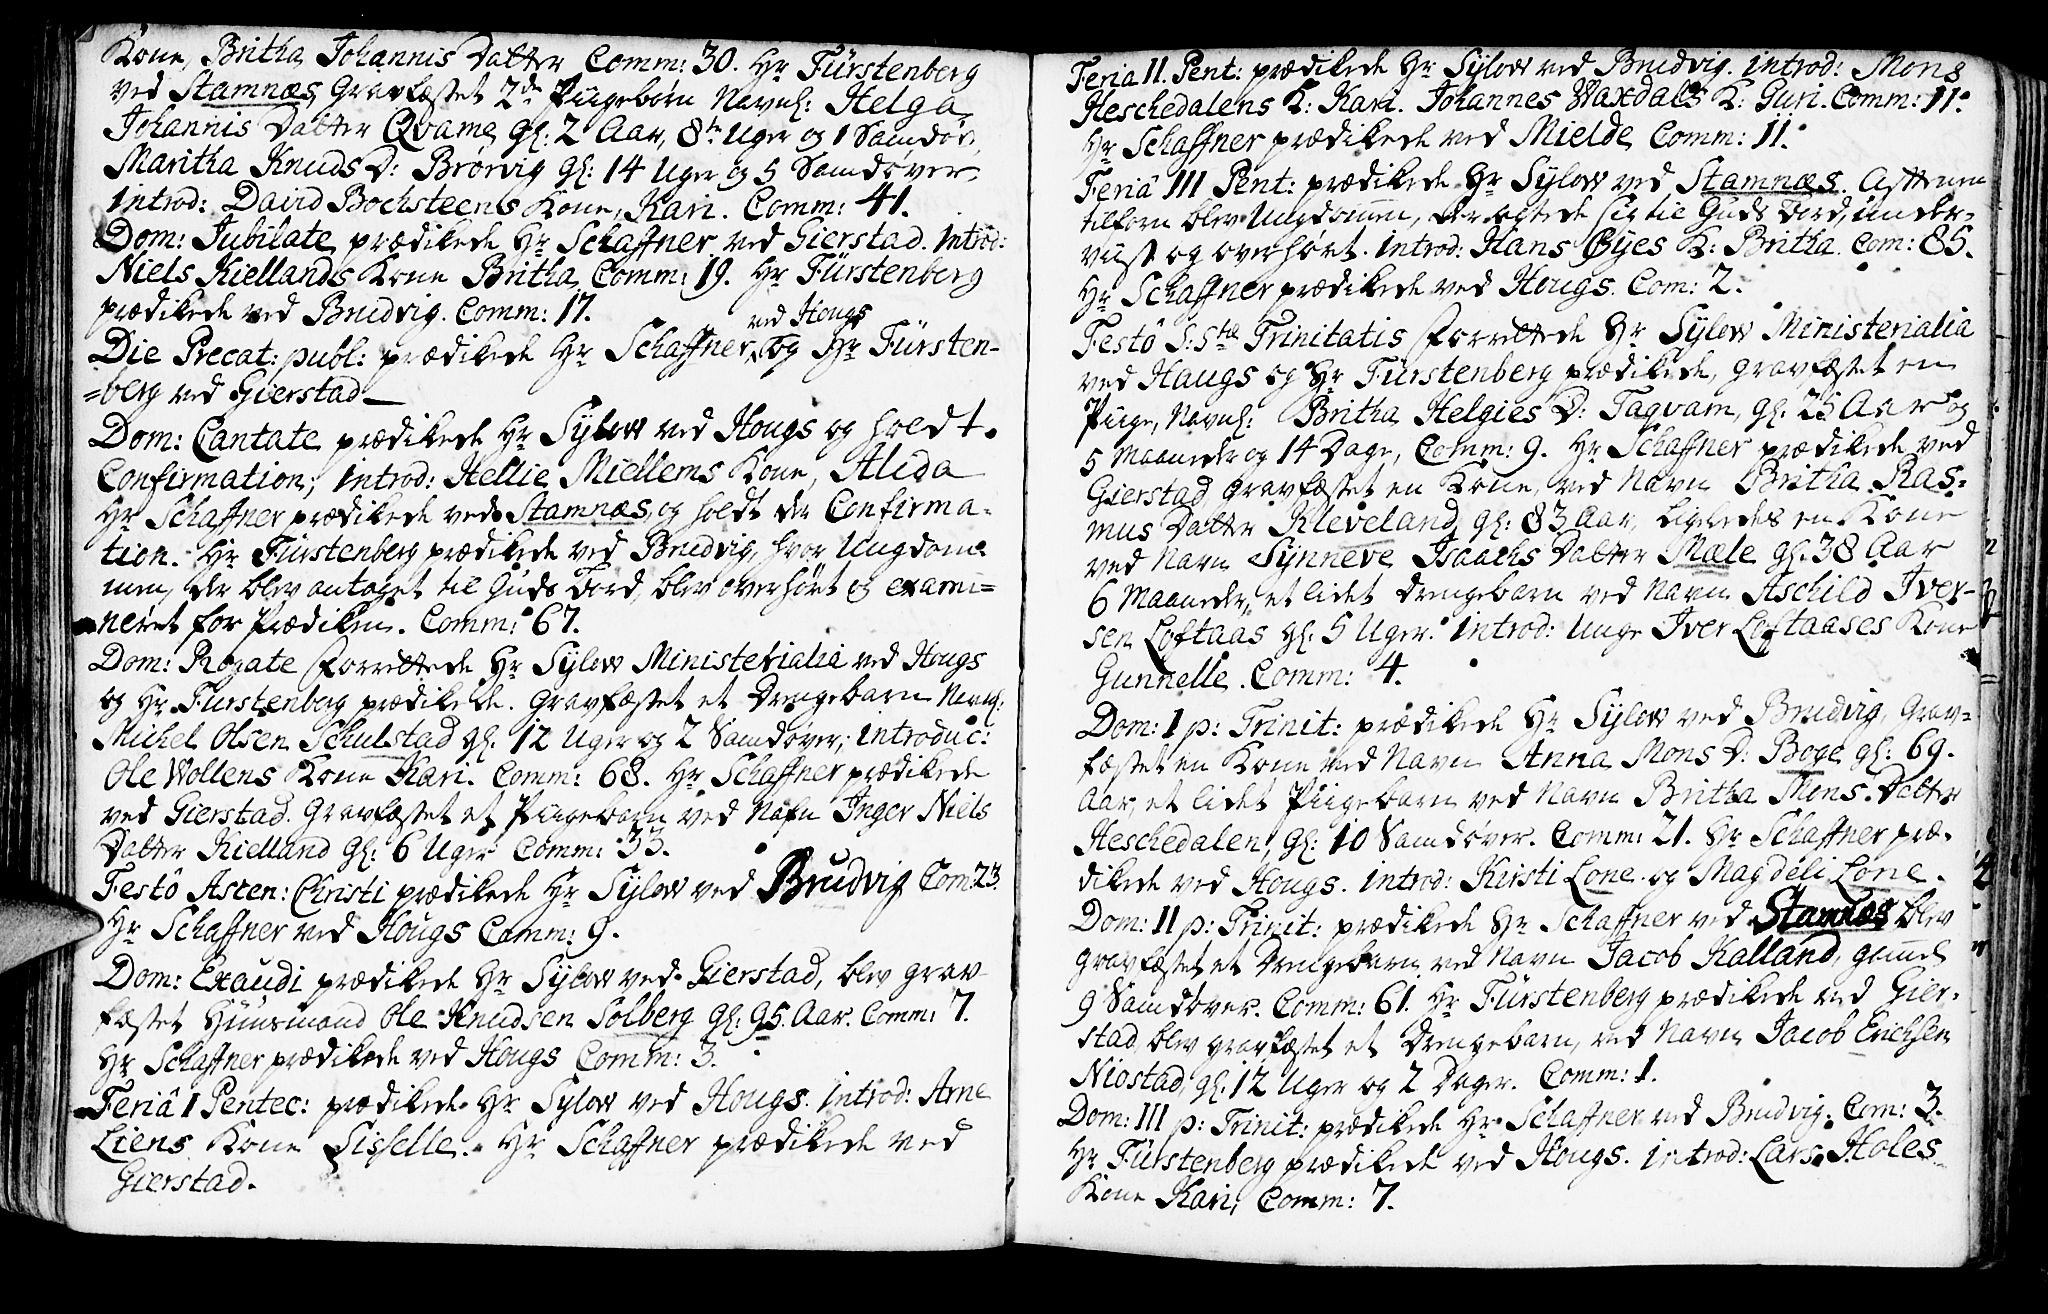 Kone, Britha Johannis Datter Comm: 30. Hr Fürstenberg
ved Stamnæs, Gravfæstet 2de Piigebørn Navnl: Helga
Johannis Datter Qvame, gl: 2 Aar, 8te Uger og 1 Samdør,
Maritha Knuds D: Brørvig gl: 14 Uger og 5 Samdøver.
introd: David Bochsteens Kone, Kari. Comm: 41.
Dom: Jubilate prædikede Hr Schaffner ved Gierstad. introd:
Niels Kiellands Kone Britha Comm: 19. Hr Fürstenberg
prædikede ved Brudvig. Comm: 17.
ved Hougs
Die Precat: publ: prædikede Hr Schaffner, og Hr Fürsten-
=berg ved Gierstad
Dom: Cantate prædikede Hr Sylow ved Hougs og holdt
Confirmation; introd: Hellie Miellems Kone, Alida
Hr Schaffner prædikede ved Stamnæs, og holdt der Confirma-
tion. Hr Fürstenberg prædikede ved Brudvig, hvor Ungdom-
men, der blev antaget til Guds Bord, blev overhørt og exami=
neret for Prædiken. Comm: 67.
Dom: Rogate Forrettede Hr Sylow Ministerialia ved Hougs
og Hr Fürstenberg prædikede. Gravfæstet et Drengebarn Navnl:
Michel Olsen Schulstad gl: 12 Uger og 2 Samdøver; introduc:
Ole Vollens Kone Kari. Comm: 68. Hr Schaffner prædikede
ved Gierstad. Gravfæstet et Piigebarn ved Nafn Inger Niels
Datter Kielland gl: 6 Uger Comm: 33.
Festô Asten: Christi prædikede Hr Sylow ved Brudvig Com: 23.
Hr Schaffner ved Hougs Comm: 9.
Dom: Exaudi prædikede Hr Sylow ved Gierstad, blev grav-
fæstet Huusmand Ole Knudsen Solberg gl: 95. Aar. Comm: 7.
Hr Schaffner prædikede ved Hougs Comm: 3.
Feriâ I Pentec: prædikede Hr Sylow ved Hougs. introd: Arne
Liens Kone Sisselle. Hr Schaffner prædikede ved
Gierstad.
Feria II. Pent: prædikede Hr Sylow ved Brudvig. introd: Mons
Heschedalens K: Kari. Johannes Vaxdals K: Guri. Comm: 11.
Hr Schaffner prædikede ved Mielde Comm: 11.
Feriâ III Pent: prædikede Hr Sylow ved Stamnæs. Aftenen
tilforn blev Ungdommen, der agtede sig til Guds Bord, under-
viist og overhørt. introd: Hans Øyes K: Britha. Com: 85.
Hr Schaffner prædikede ved Hougs. Com: 2.
Festô S: Stæ Trinitatis Forrettede Hr Sylow Ministerialia
ved Haugs og Hr Fürstenberg prædikede, gravfæstet en
Piige, Navnl: Britha Helgies D: Tagvam, gl: 25 Aar og
5 Maaneder og 14 Dage, Comm: 9. Hr Schaffner prædikede ved
Gierstad gravfæstet en Kone, ved Navn Britha Ras-
mus Datter Kleveland gl: 83 Aar, ligeledes en Kone
ved Navn Synneve Isaachs Datter Mæle gl: 38 Aar
6 Maaneder, et lidet Drengebarn ved Navn Aschild Iver-
sen Loftaas gl: 5 Uger. introd: Unge Iver Loftaases Kone
Gunnelle. Comm: 4.
Dom: I p: Trinit: prædikede Hr Sylow ved Brudvig, Grav=
fæstet en Kone ved Navn Anna Mons D: Boge gl: 69.
Aar, et lidet Piigebarn ved Navn Britha Mons Datter
Heschedalen, gl: 10 Samdøver. Comm: 21. Hr Schaffner præ-
dikede ved Hougs. introd: Kirsti Lone og Magdeli Lone.
Dom: II p: Trinit: prædikede Hr Schaffner ved Stamnæs blev
gravfæstet et Drengebarn ved Navn Jacob Kalland, gammel
9 Samdøver. Comm: 61. Hr Fürstenberg prædikede ved Gier-
stad, blev gravfæstet et Drengebarn, ved Navn Jacob Erichsen
Niostad, gl: 12 Uger og 2 Dager. Comm: 1.
Dom: III p: Trinit: prædikede Hr Schaffner ved Brudvig. Com: 3.
Hr Fürstenberg prædikede ved Hougs. introd: Lars Holes
Kone Kari, Comm: 7.